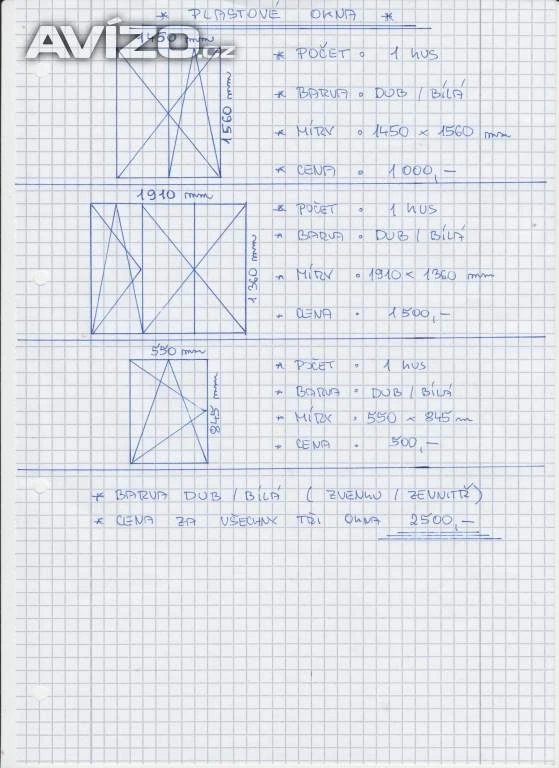 * PLASTOVÉ OKNA *
AVÍZO.cz
1450 mm
1560 mm
* POČET • 1 kus
* BARVA • DUB / BÍLÁ
* MÍRY • 1450 × 1560 mm
* CENA • 1000,–
1910 mm
1360 mm
* POČET • 1 kus
* BARVA • DUB / BÍLÁ
* MÍRY • 1910 × 1360 mm
* CENA • 1500,–
550 mm
845 mm
* POČET • 1 kus
* BARVA • DUB / BÍLÁ
* MÍRY • 550 × 845 m
* CENA • 500,–
* BARVA DUB / BÍLÁ ( ZVENKU / ZEVNITŘ )
* CENA ZA VŠECHNY TŘI OKNA 2500,–